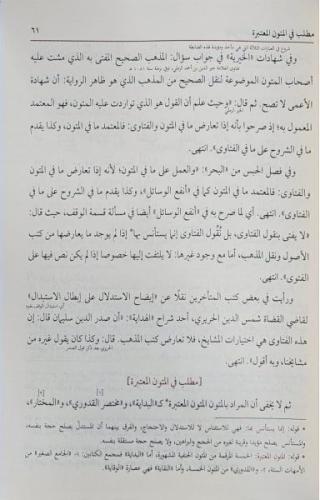 مطلب في المتون المعتبرة ٦١
وفي شهادات «الخيرية» في جواب سؤال: المذهب الصحيح المفتى به الذي مشت عليه
أصحاب المتون الموضوعة لنقل الصحيح من المذهب الذي هو ظاهر الرواية: أن شهادة
الأعمى لا تصح. ثم قال: «وحيث علم أن القول هو الذي تواردت عليه المتون، فهو المعتمد
المعمول به؛ إذ صرحوا بأنه إذا تعارض ما في المتون والفتاوى: فالمعتمد ما في المتون، وكذا يقدم
ما في الشروح على ما في الفتاوى». انتهى.
وفي فصل الحبس من «البحر»: «والعمل على ما في المتون؛ لأنه إذا تعارض ما في المتون
والفتاوى: فالمعتمد ما في المتون كما في «أنفع الوسائل»، وكذا يقدم ما في الشروح على ما في
الفتاوى». انتهى. أي لما صرح به في «أنفع الوسائل» أيضا في مسألة قسمة الوقف، حيث قال:
«لا يفتى بنقول الفتاوى، بل نقول الفتاوى إنما يستأنس بها* إذا لم يوجد ما يعارضها من كتب
الأصول ونقل المذهب، أما مع وجود غيرها: لا يلتفت إليها خصوصا إذا لم يكن نص فيها على
الفتوى». انتهى.
ورأيت في بعض كتب المتأخرين نقلا عن «إيضاح الاستدلال على إبطال الاستبدال»
لقاضي القضاة شمس الدين الحريري، أحد شراح «الهداية»: «أن صدر الدين سليمان قال: إن
هذه الفتاوى هي اختيارات المشايخ، فلا تعارض كتب المذهب. قال: وكذا كان يقول غيره من
مشايخنا، وبه أقول». انتهى.
[مطلب في المتون المعتبرة]
ثم لا يخفى أن المراد بالمتون المتون المعتبرة* كـ«البداية»، و«مختصر القدوري»، و«المختار»،
* قوله: إنما يستأنس بها: فهي للاستئناس لا للاستدلال والاحتجاج، والفرق بينهما أن المستدل يصلح حجة بنفسه،
والمستأنس يصلح مؤيدا وقرينة لغيره من الحجج والبراهين، ولا يصلح حجة مستقلة بنفسه.
* قوله: المتون المعتبرة: